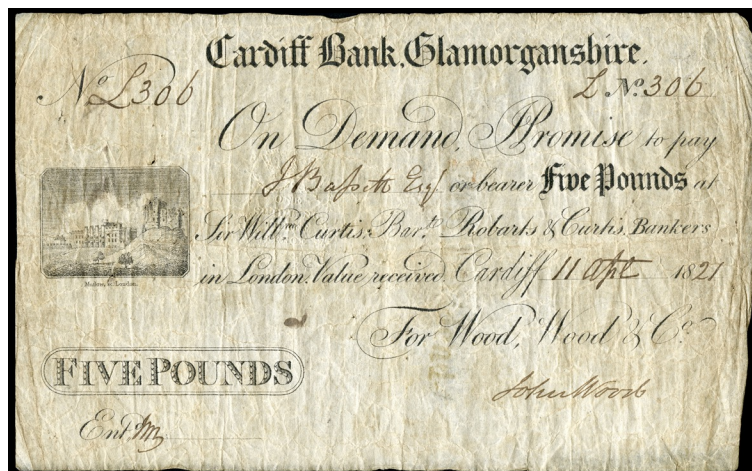 Cardiff Bank, Glamorganshire.
No. L306
L No. 306
On Demand, I Promise to pay
J Bassett Esqr. or bearer Five Pounds at
Sir Willm. Curtis, Bart. Robarts & Curtis, Bankers
in London. Value received. Cardiff 11 Apl 1821
For Wood, Wood & Co.
FIVE POUNDS
John Wood
Entd.